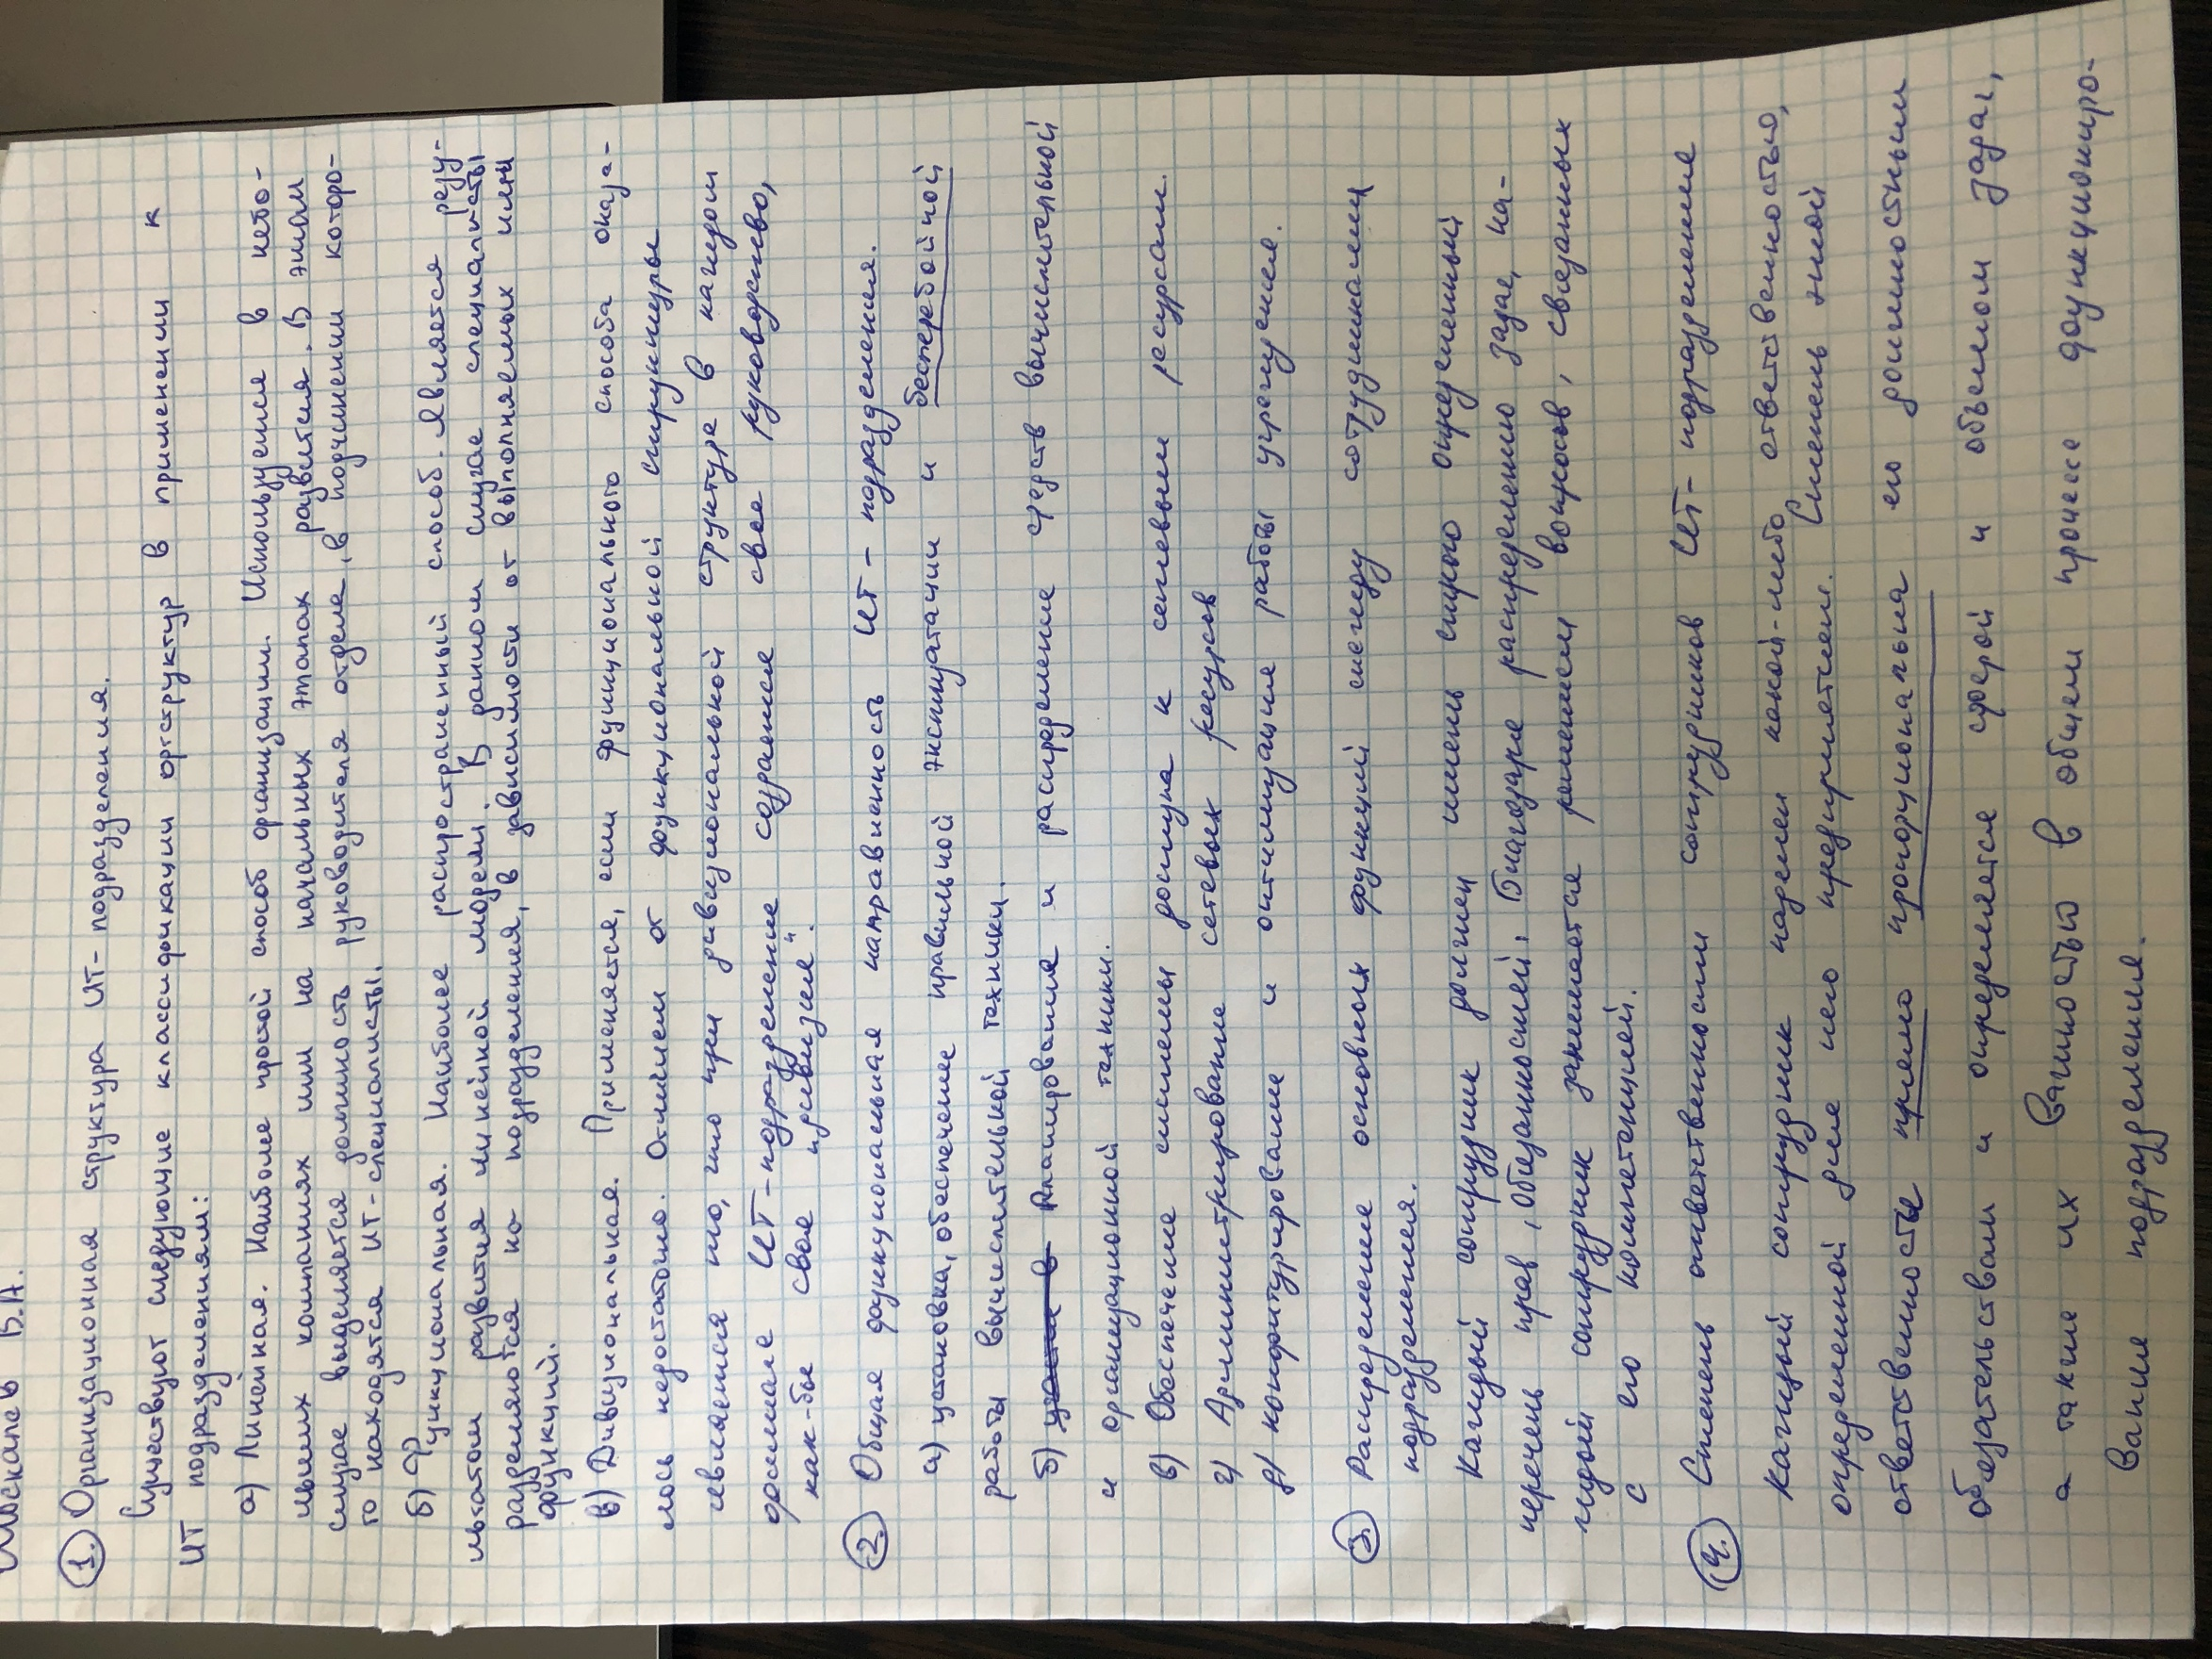 Москалев В.А.
1. Организационная структура ИТ- подразделения.
Существуют следующие классификации оргструктур в применении к
ИТ подразделениям:
а) Линейная. Наиболее простой способ организации. Используется в небо-
льших компаниях или на начальных этапах развития. В этом
случае выделяется должность руководителя отдела, в подчинении которо-
го находятся ИТ-специалисты.
б) Функциональная. Наиболее распространенный способ. Является резу-
льтатом развития линейной модели. В данном случае специалисты
разделяются по подразделения, в зависимости от выполняемых ими
функций.
в) Дивизиональная. Применяется, если функционального способа оказа-
лось недостаточно. Отличием от функциональной структуры
является то, что при дивизиональной структуре в каждом
филиале ИТ-подразделение содрание свое руководство,
как-бы свое "дивизия".
2. Общая функциональная направленность ИТ- подразделения.
а) установка, обеспечение правильной эксплуатации и бесперебойной
работы вычислительной техники.
б) Планирование и распределение средств вычислительной
и организационной техники.
в) Обеспечение системы доступа к сетевым ресурсам.
г) Администрирование сетевых ресурсов
д) конфигурирование и оптимизация работы учреждения.
3. Распределение основных функций между сотрудниками
подразделения.
Каждый сотрудник должен иметь строго определенный
перечень прав, обязанностей. Благодаря распределению задач, ка-
ждый сотрудник занимается решением вопросов, связанных
с его компетенцией.
4. Степень ответственности сотрудников ИТ- подразделение
Каждый сотрудник наделен какой-либо ответственностью,
определенной для него предприятием. Степень этой
ответственности прямо пропорциональна его должностным
обязательствам и определяется сферой и объемом задач,
а также их важностью в общем процессе функциониро-
вание подразделения.